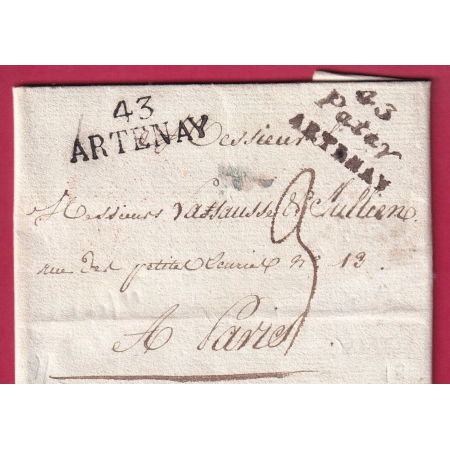 43
ARTENAY
43
patay
ARTENAY
Messieurs
Messieurs Vassausse & Jullien
rue des petites Ecuries N° 13
A Paris
3